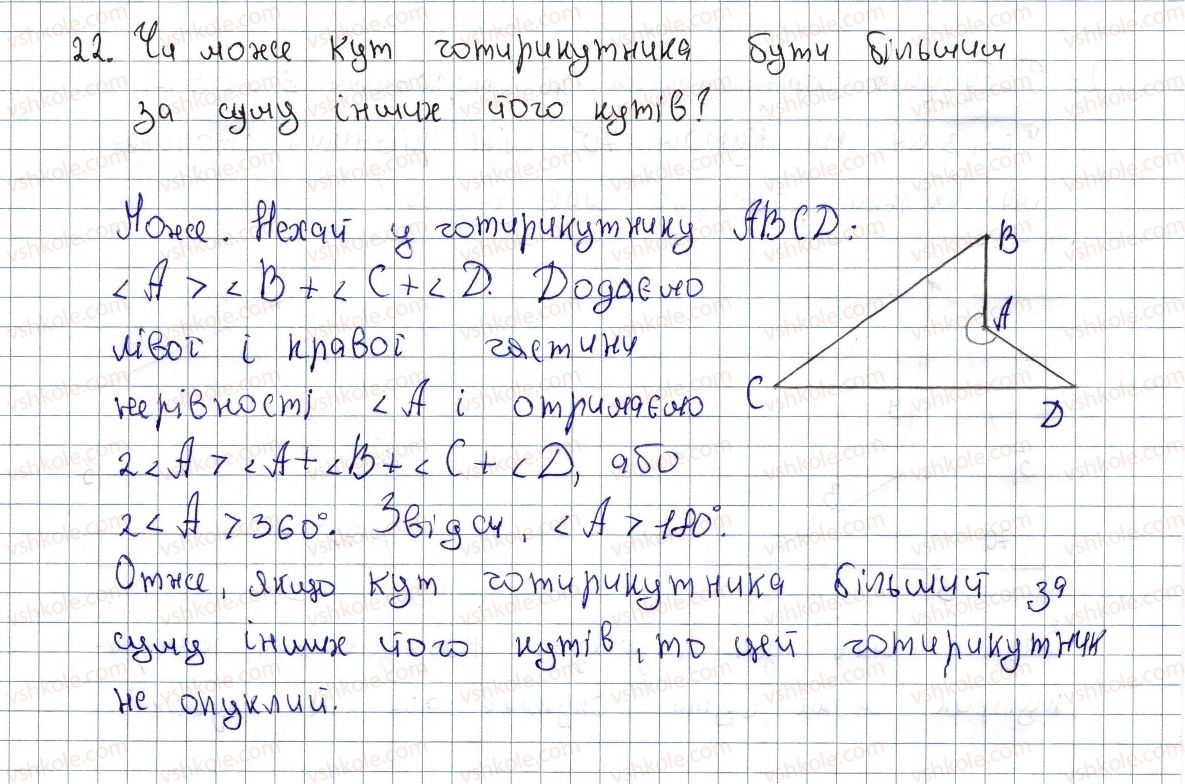 22. Чи може кут чотирикутника бути більшим
за суму інших його кутів?
Може. Нехай у чотирикутнику ABCD:
<A > <B + <C + <D. Додаємо
лівої і правої частини
нерівності <A і отримаємо
2<A > <A + <B + <C + <D, або
2<A > 360°. Звідси, <A > 180°.
Отже, якщо кут чотирикутника більший за
суму інших його кутів, то цей чотирикутник
не опуклий.
B
A
C
D
vshkole.com